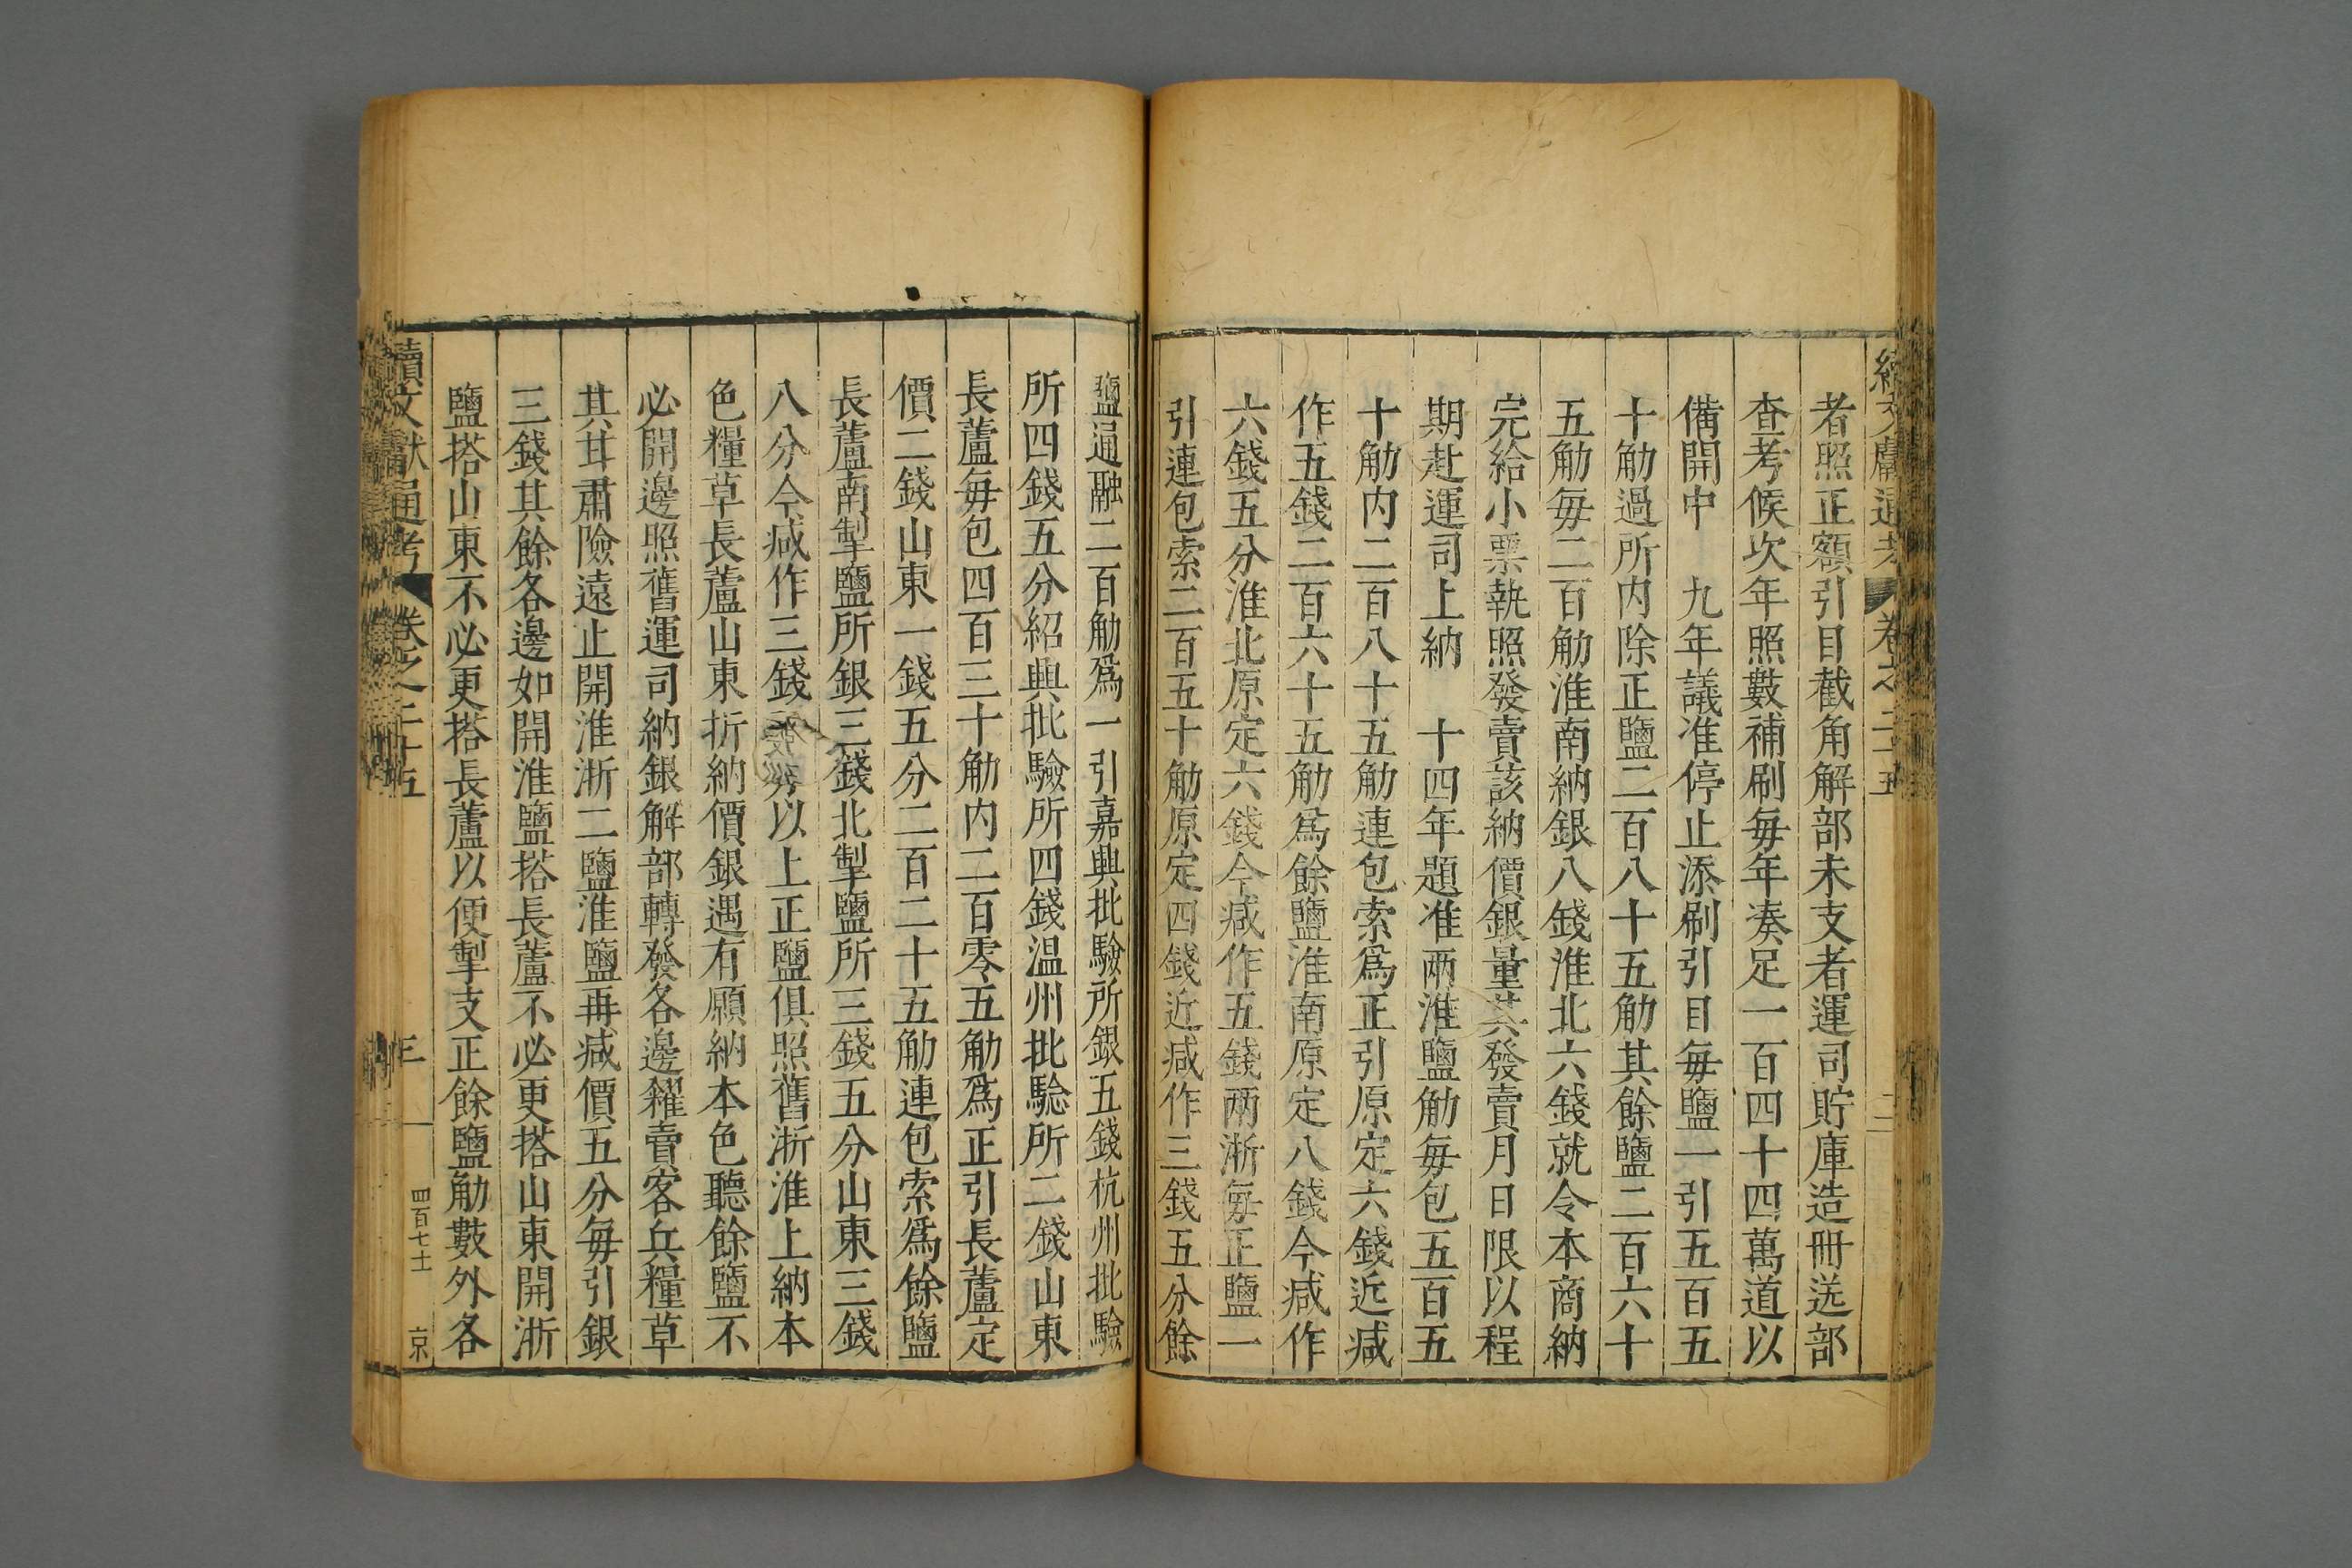 續文獻通考 卷之二十五 二
者照正額引目截角解部未支者運司貯庫造冊送部
查考候次年照數補刷每年湊足一百四十四萬道以
備開中 九年議准停止添刷引目每鹽一引五百五
十觔過所内除正鹽二百八十五觔其餘鹽二百六十
五觔每二百觔淮南納銀八錢淮北六錢就令本商納
完給小票執照發賣該納價銀量其發賣月日限以程
期赴運司上納 十四年題准兩淮鹽觔每包五百五
十觔内二百八十五觔連包索爲正引原定六錢近減
作五錢二百六十五觔爲餘鹽淮南原定八錢今減作
六錢五分淮北原定六錢今減作五錢兩浙每正鹽一
引連包索二百五十觔原定四錢近減作三錢五分餘
鹽通融二百觔爲一引嘉興批驗所銀五錢杭州批驗
所四錢五分紹興批驗所四錢温州批驗所二錢山東
長蘆每包四百三十觔内二百零五觔爲正引長蘆定
價二錢山東一錢五分二百二十五觔連包索爲餘鹽
長蘆南掣鹽所銀三錢北掣鹽所三錢五分山東三錢
八分今減作三錢以上正鹽俱照舊浙淮上納本
色糧草長蘆山東折納價銀遇有願納本色聽餘鹽不
必開邊照舊運司納銀解部轉發各邊糴賣客兵糧草
其甘肅險遠止開淮浙二鹽淮鹽再減價五分每引銀
三錢其餘各邊如開淮鹽搭長蘆不必更搭山東開浙
鹽搭山東不必更搭長蘆以便掣支正餘鹽觔數外各
續文獻通考 卷之二十五 三 四百七十 京